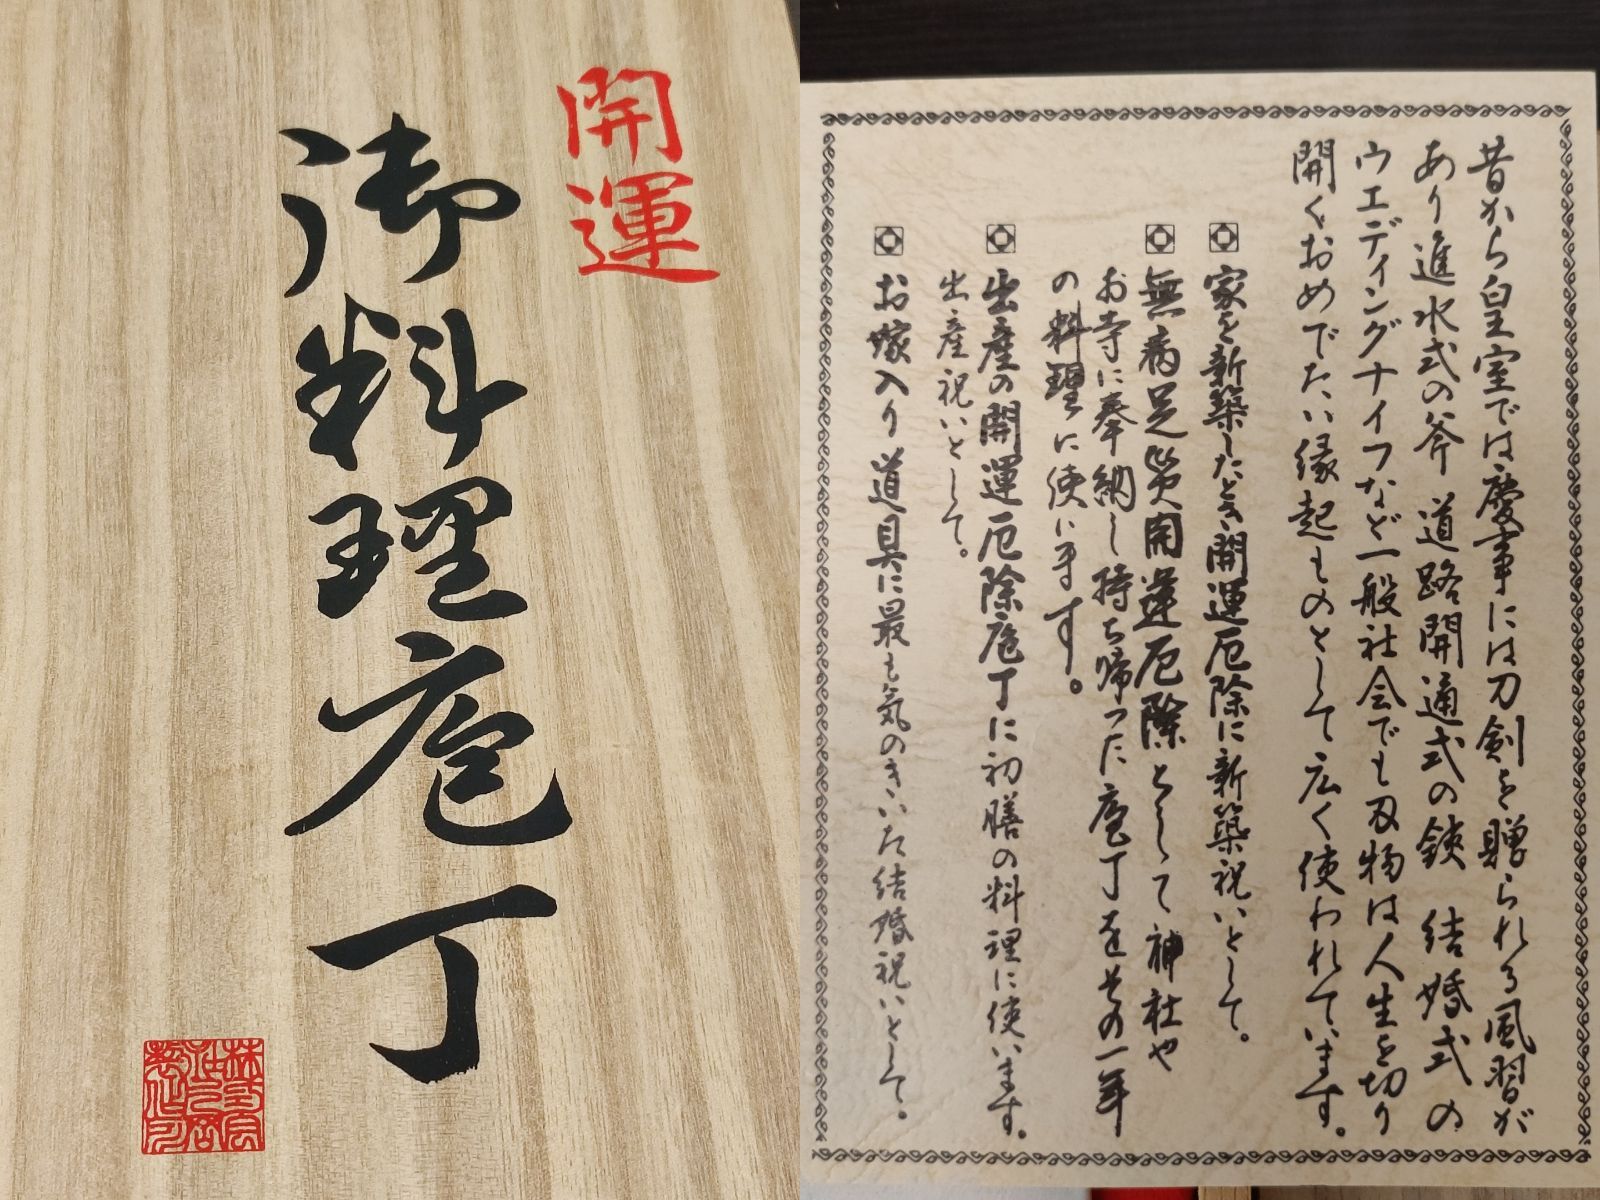 開運
御料理庖丁
昔から皇室では慶事には刀剣を贈られる風習が
あり進水式の斧 道路開通式の鋏 結婚式の
ウエディングナイフなど一般社会でも刃物は人生を切り
開くおめでたい縁起ものとして広く使われています。
家を新築したとき開運厄除に新築祝いとして。
無病足災開運厄除として神社や
お寺に奉納し持ち帰った庖丁をその一年
の料理に使います。
出産の開運厄除庖丁に初膳の料理に使います。
出産祝いとして。
お嫁入り道具に最も気のきいた結婚祝いとして。